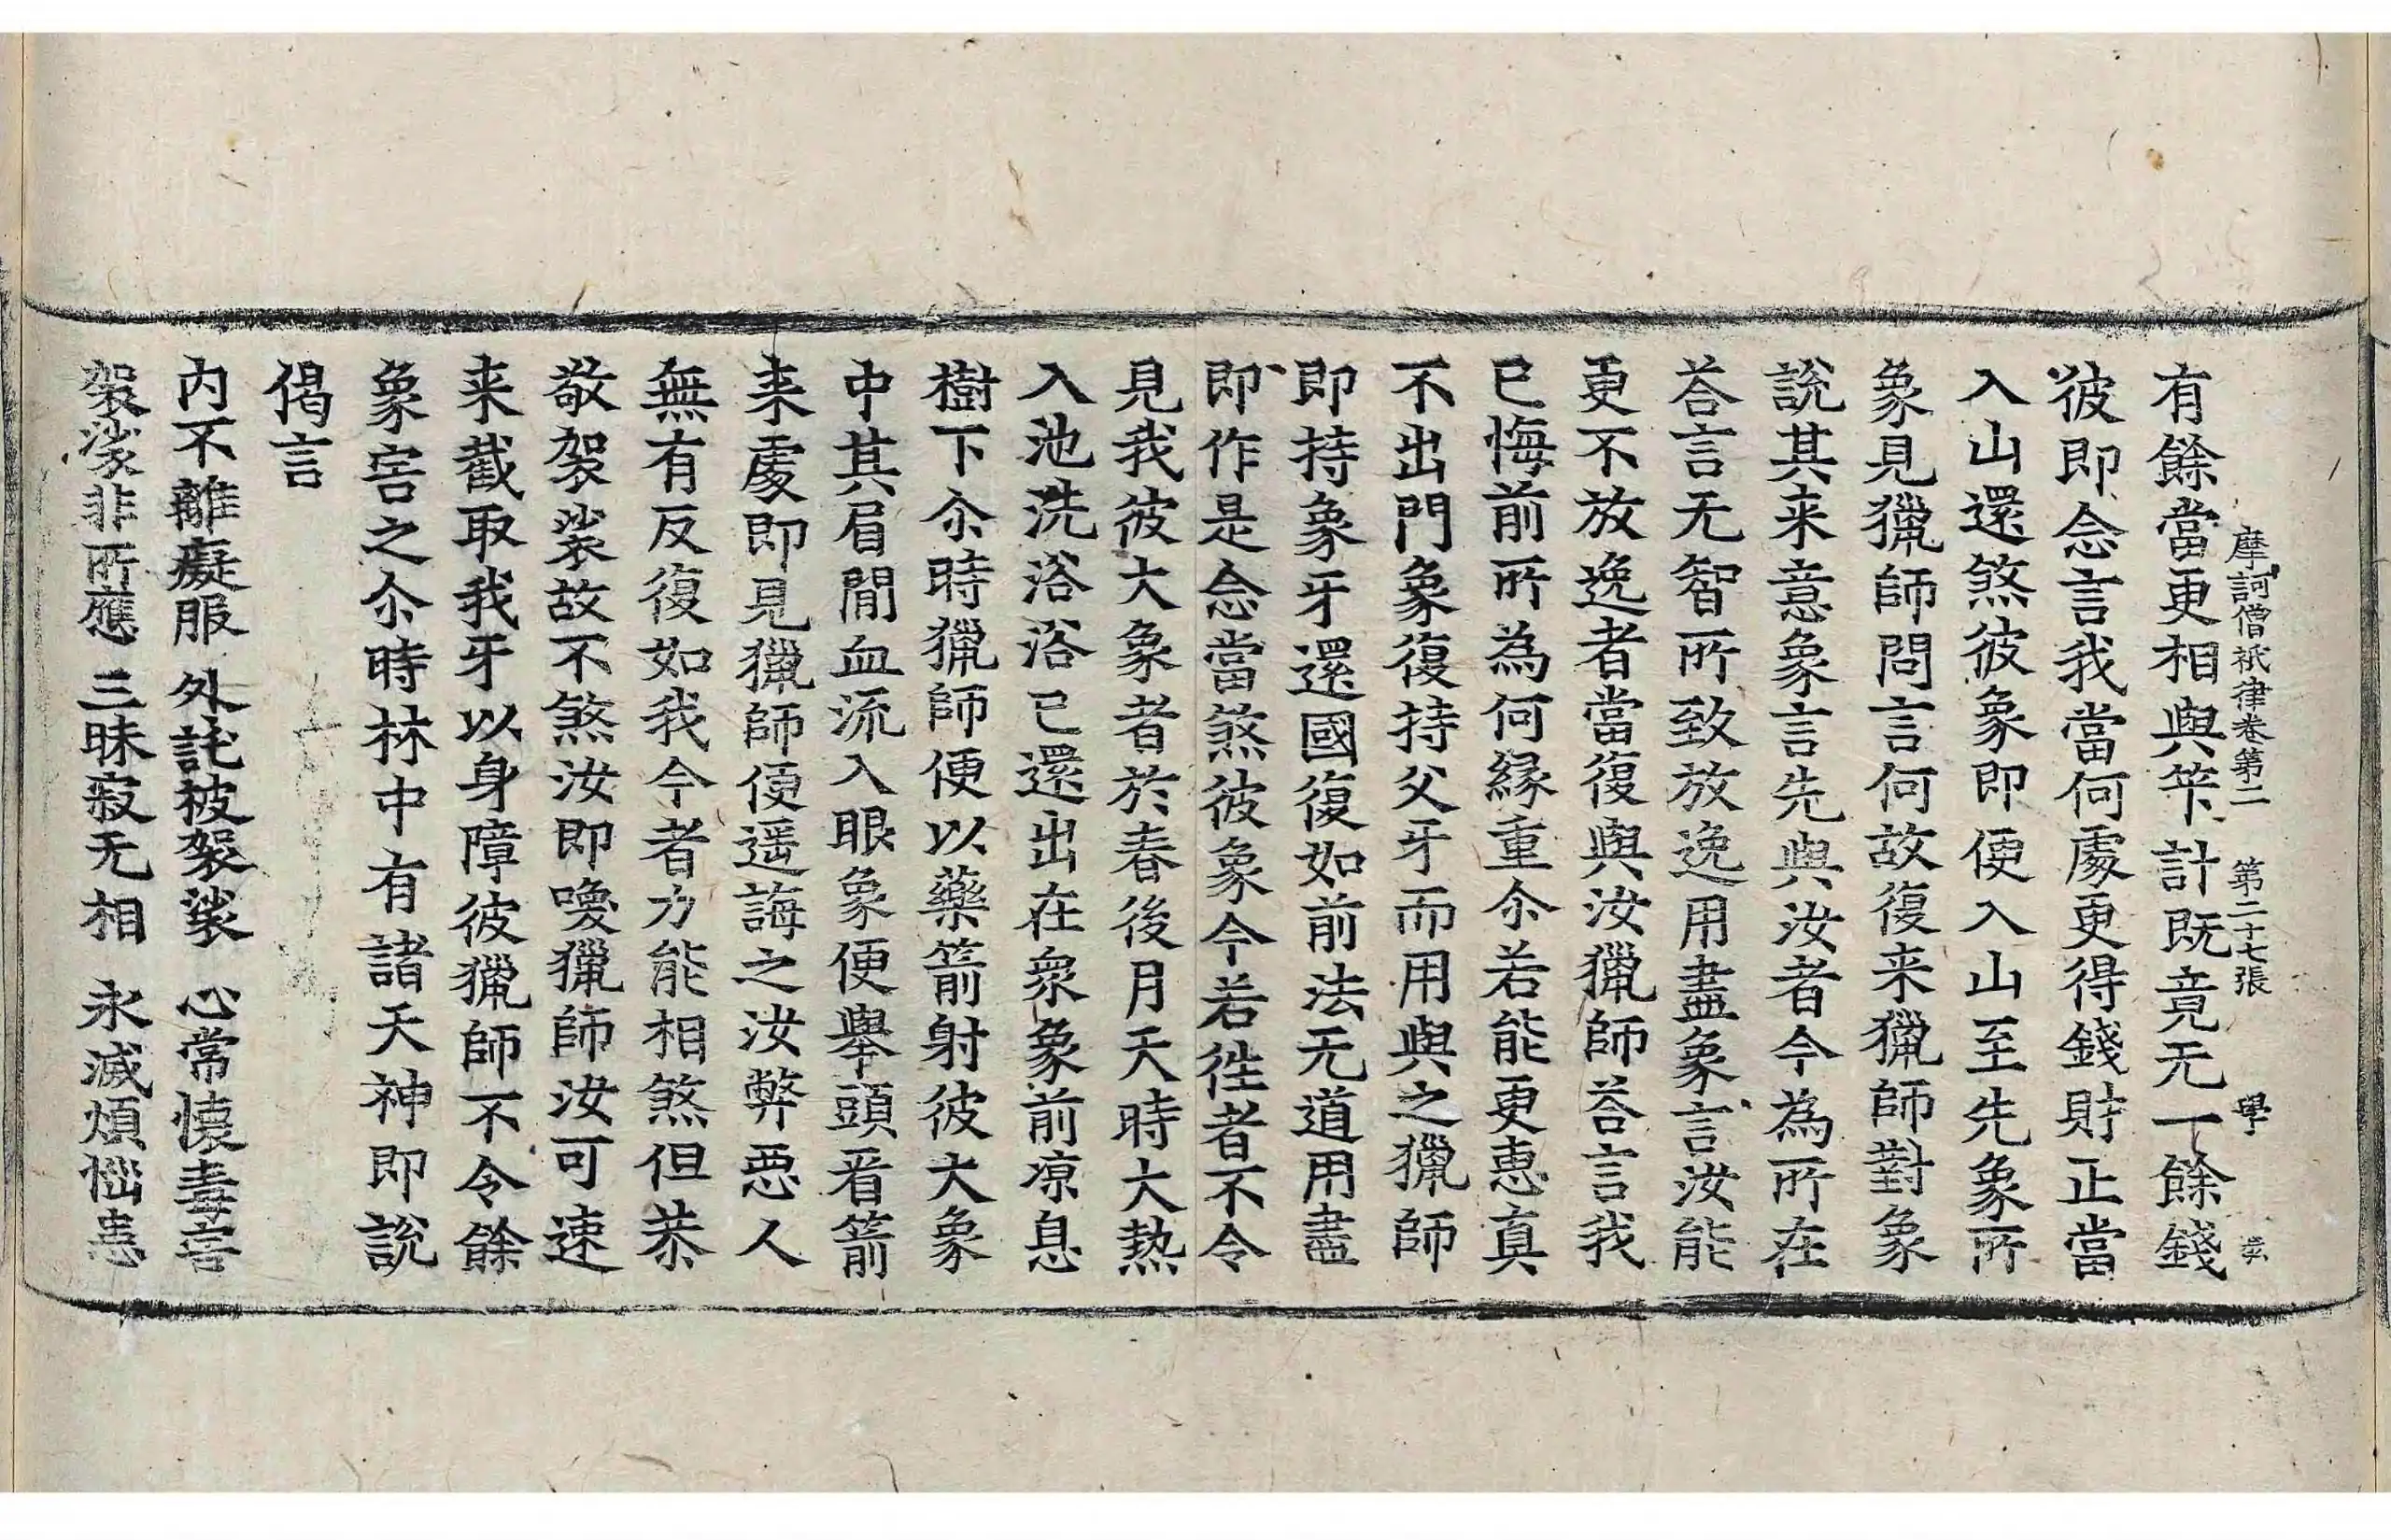 摩訶僧祇律卷第二 第二十七張 學
有餘當更相與笇計既竟无一餘錢
彼即念言我當何處更得錢財正當
入山還煞彼象即便入山至先象所
象見獵師問言何故復来獵師對象
說其来意象言先與汝者今為所在
荅言无智所致放逸用盡象言汝能
更不放逸者當復與汝獵師荅言我
已悔前所為何緣重尒若能更恵真
不出門象復持父牙而用與之獵師
即持象牙還國復如前法无道用盡
即作是念當煞彼象今若徃者不令
見我彼大象者於春後月天時大熱
入池洗浴浴已還出在衆象前凉息
樹下尒時獵師便以藥箭射彼大象
中其眉間血流入眼象便舉頭看箭
来處即見獵師便遥誨之汝弊惡人
無有反復如我今者力能相煞但恭
敬袈裟故不煞汝即喚獵師汝可速
来截取我牙以身障彼獵師不令餘
象害之尒時林中有諸天神即說
偈言
内不離癡服 外詫被袈裟 心常懐毒害
袈裟非所應 三昧寂无相 永滅煩惱患